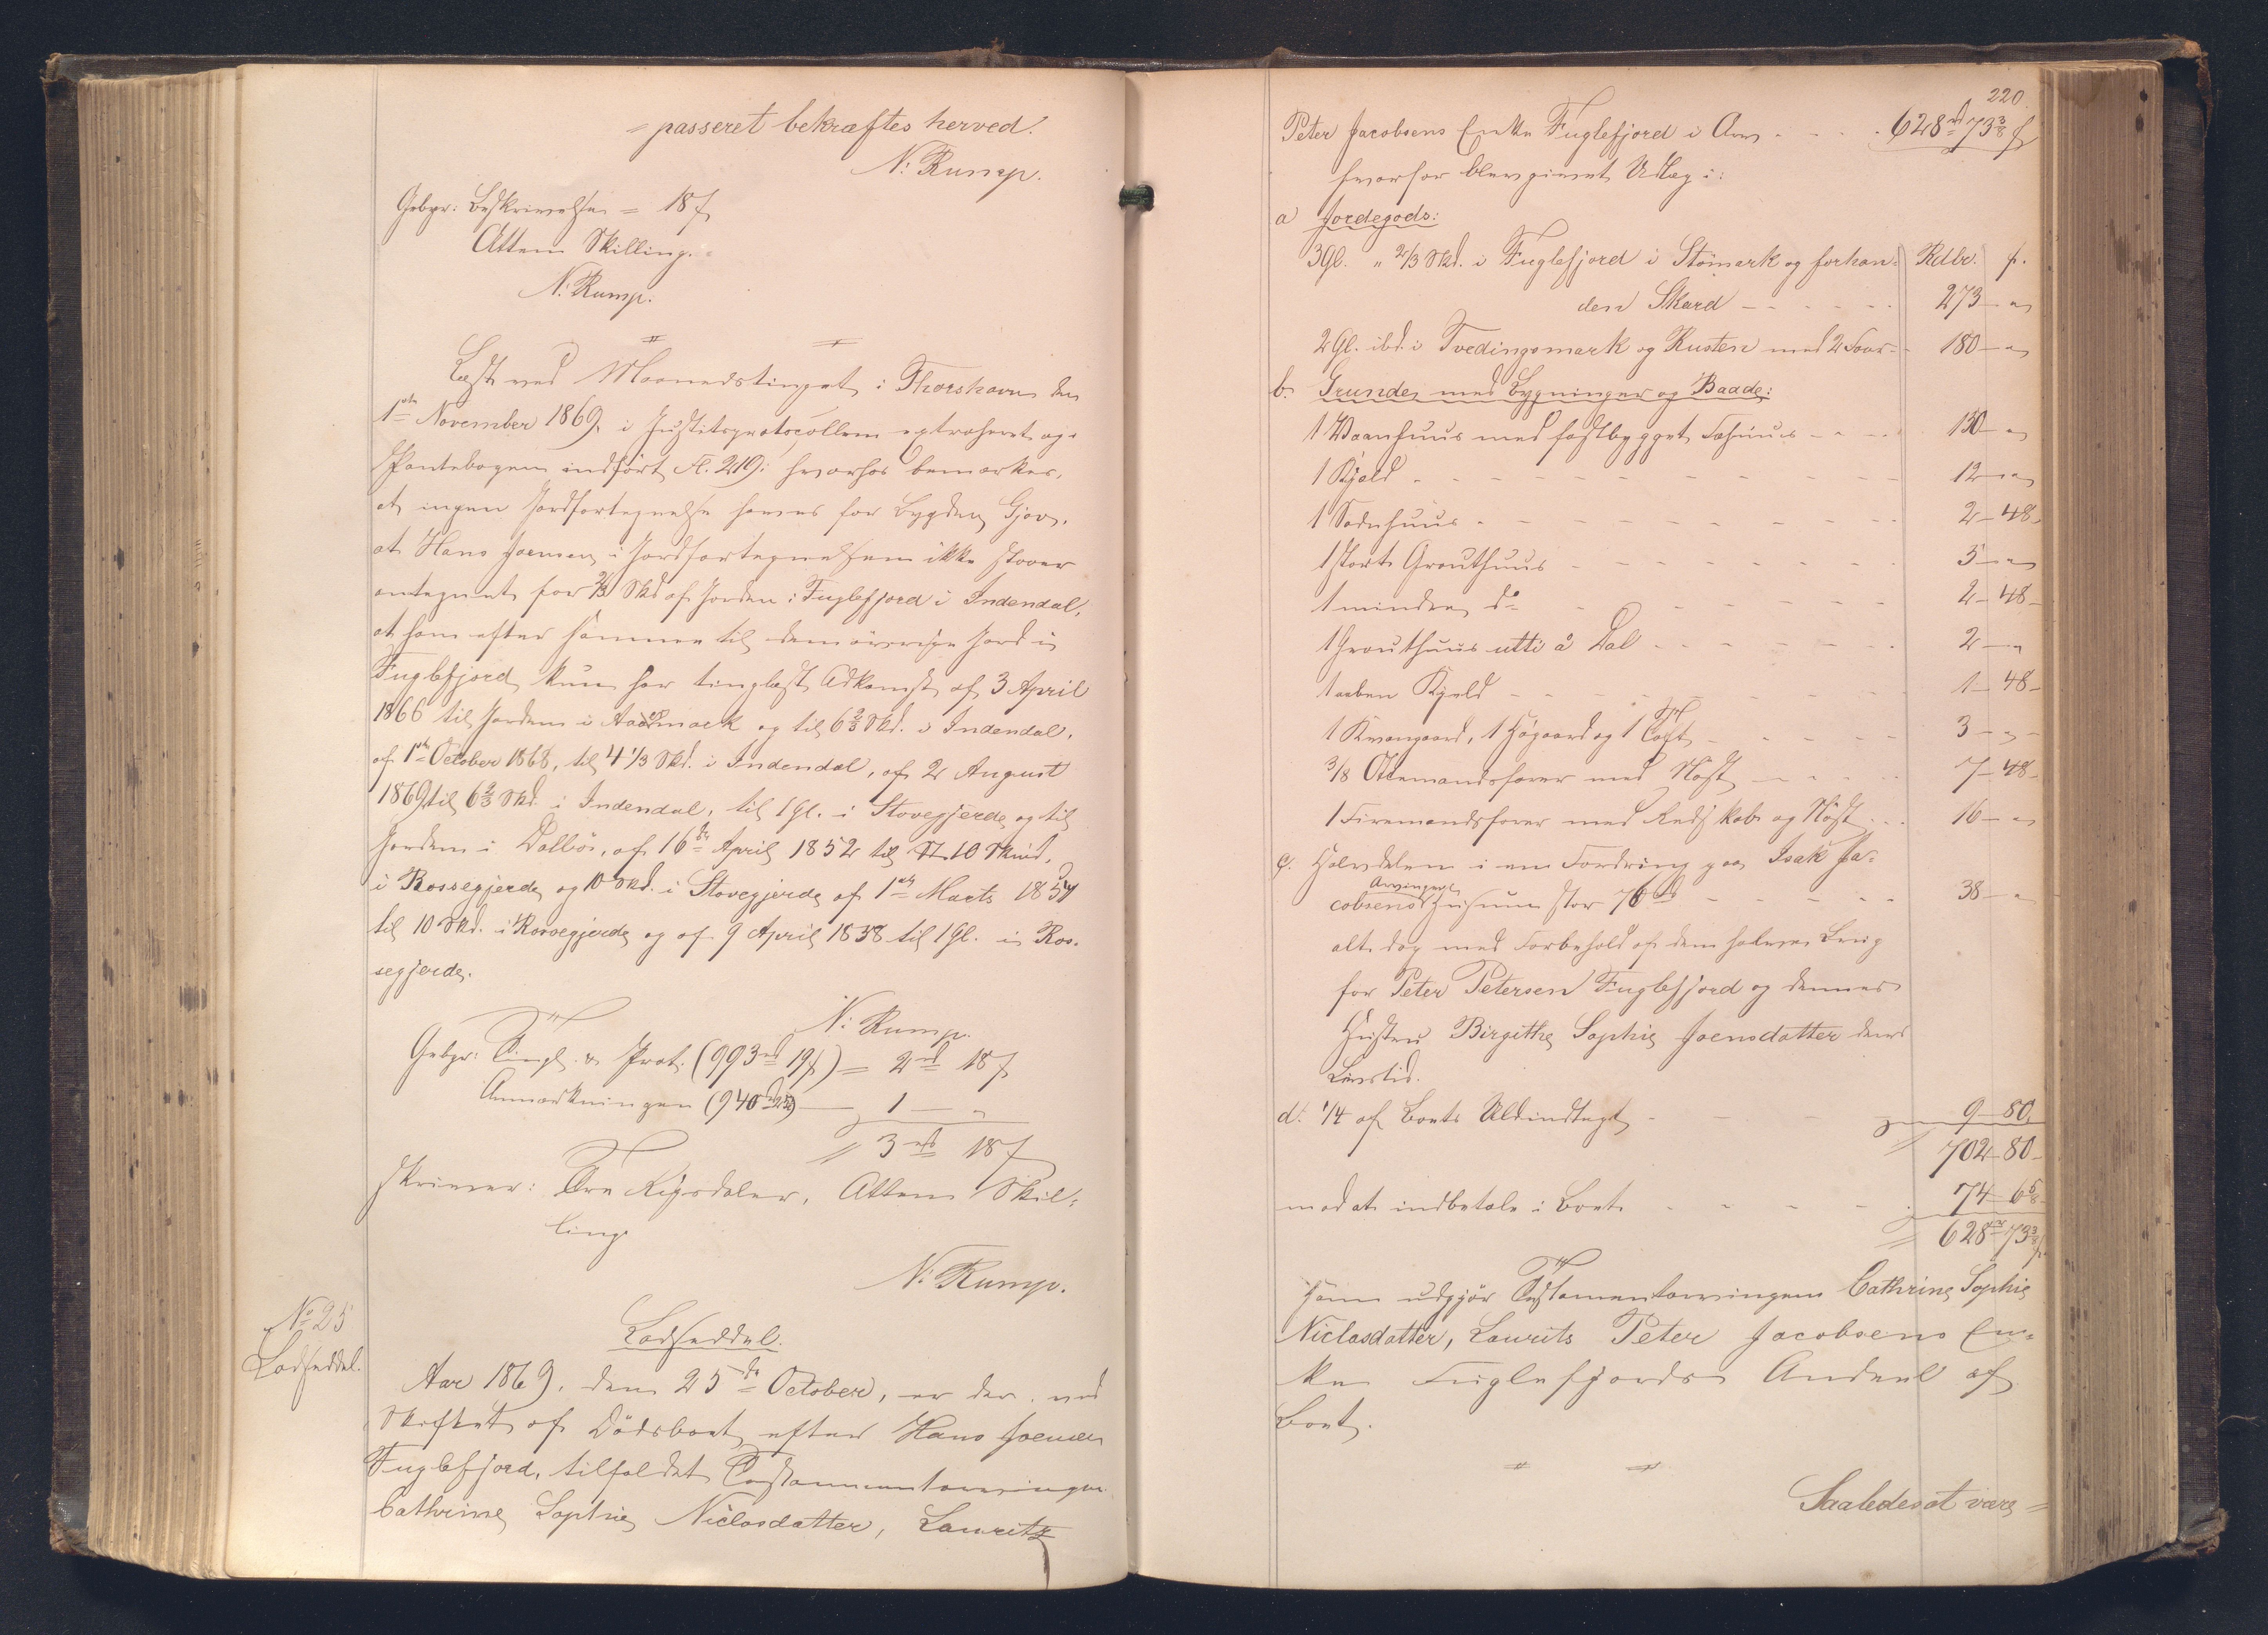 = passeret bekræftes herved.
N: Rump.
Gebyr: Beskrivelse = 18 ß
Atten Skilling.
N. Rump.
Læst ved Maanedstinget i Thorshavn den
1ste November 1869, i Justitsprotocollen extraheret og i
Pantebogen indført Fl. 219; hvorhos bemærkes,
at ingen Jordfortegnelse haves for Bygden Gjov,
at Hans Joensen i Jordfortegnelsen ikke staaer
antegnet for 2/3 Skd af Jorden i Fuglefjord i Indendal,
at han efter samme til den øvrige Jord i
Fuglefjord kun har tinglæst Adkomst af 3 April
1866 til Jorden i mark og til 6 2/3 Skd. i Indendal,
af 1ste October 1868, til 4 1/3 Skd. i Indendal, af 2 August
1869 til 6 2/3 Skd. i Indendal, til 1 Gl. i Stovegjerde og til
Jorden i Dalbø, af 16de April 1852 til 10 Skind,
i Rossegjerde og 10 Skd. i Stovegjerde af 1ste Marts 1854
til 10 Skd. i Rossegjerde og af 9 April 1838 til 1 Gl. i Ros-
segjerde.
N: Rump.
Gebyr: Tingl. & Prot. (993 rd 19 ß) = 2 rd 18 ß
Anmærkningen (940 rd 25) — 1 — "
= 3 rd 18 ß
skriver: Tre Rigsdaler, Atten Skil-
ling
N: Rump.
No 25
Lodseddel.
Lodseddel.
Aar 1869, den 25de October, er der ved
Skiftet af Dødsboet efter Hans Joensen
Fuglefjord, tilfaldet Testamentarvingen
Cathrine Sophie Niclasdatter, Lauritz
220
Peter Jacobsens Enke Fuglefjord i Arv - - - 628 rd 73 3/8 ß
hvorfor blev givet Udlæg i:
a Jordegods:
3 Gl. " 2/3 Skd. i Fuglefjord i Stømark og forhan- Rdlr. ß.
den Skard - - - - 273 — "
2 Gl. ibd. i Tvedingsmark og Kusten med 2 Faar - 180 — "
b. Grunde, med Bygninger og Baade:
1 Vaanhuus med fastbygget Fæhuus - - - 130 — "
1 Kjeld - - - - 12 — "
1 Sodnhuus - - - - 2 — 48 -
1 stort Grouthuus - - - - 5 — "
1 mindre do - - - - 2 — 48 -
1 Grouthuus utti å Dal - - - - 2 — "
1 aaben Kjeld - - - - 1 — 48 -
1 Kvangaard, 1 Høgaard og 1 Toft - - - - 3 — " -
3/8 Ottemandsfarer med Nøst - - - - 7 — 48 -
1 Firemandsfarer med Redskab og Nøst - - - 16 — "
c. Halvdelen i en Fordring paa Isak Ja-
cobsens Arvinger Husum stor 76 rd - - - - 38 — "
alt dog med Forbehold af den halve Brug
for Peter Petersen Fuglefjord og dennes
Hustru Birgithe Sophie Joensdatter deres
Livstid.
d. 1/4 af Boets Uldindtægt - - - 9 — 80
= 702 — 80 -
mod at indbetale i Boet - - - - 74 — 6 5/8
= 628 rd 73 3/8 ß
Hvilket udgjør Testamentarvingen Cathrine Sophie
Niclasdatter, Laurits Peter Jacobsens En-
ke Fuglefjords Andeel af
Boet.
Saaledes at være =